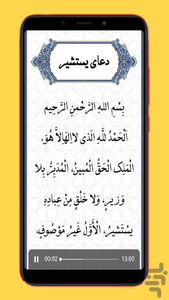 دعای یستشیر
بِسْمِ اللهِ الرَّحْمنِ الرَّحیمِ
اَلْحَمْدُ لِلّهِ الَّذی لا اِلهَ اِلاَّ هُوَ،
الْمَلِکُ الْحَقُّ الْمُبینُ، الْمُدَبِّرُ بِلا
وَزیرٍ، وَلا خَلْقٍ مِنْ عِبادِهِ
یَسْتَشیرُ، الْاَوَّلُ غَیْرُ مَوْصُوفٍ،
00:02
13:00
بازار